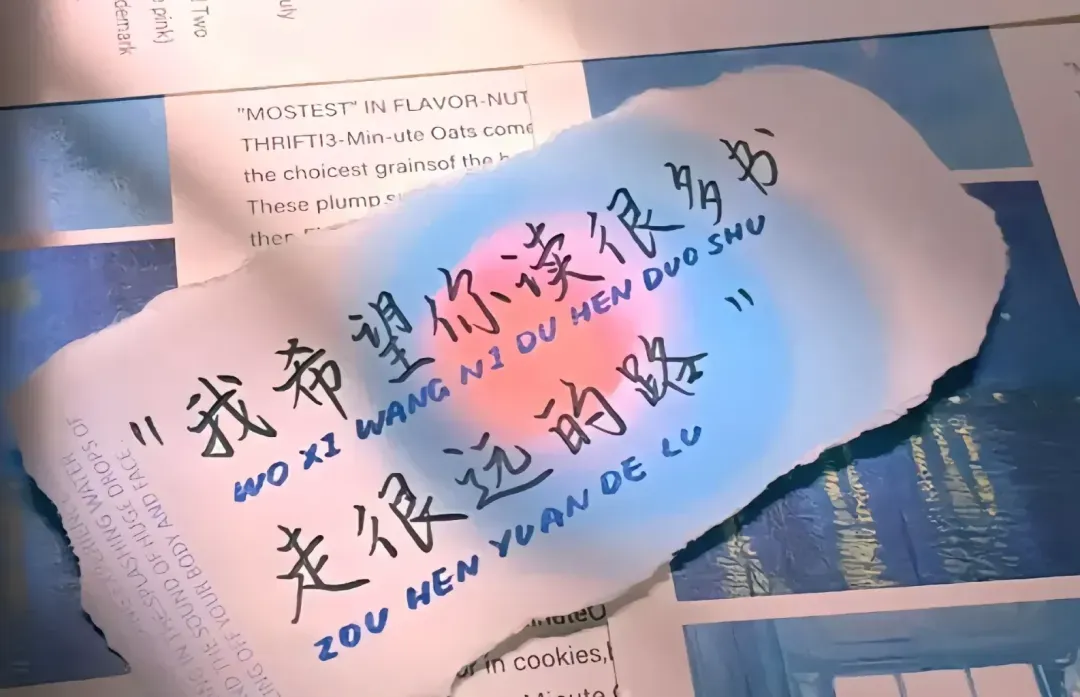 uly
d Two
e pink)
demark
"MOSTEST" IN FLAVOR-NUT
THRIFTI3-Min-ute Oats come
the choicest grainsof the
These plump
then
"我希望你读很多书
WO XI WANG NI DU HEN DUO SHU
走很远的路"
ZOU HEN YUAN DE LU
IN THE SPLASHING WATER
THE SOUND OF HUGE DROPS OF
OFF YOUR BODY AND FACE.
or in cookies,